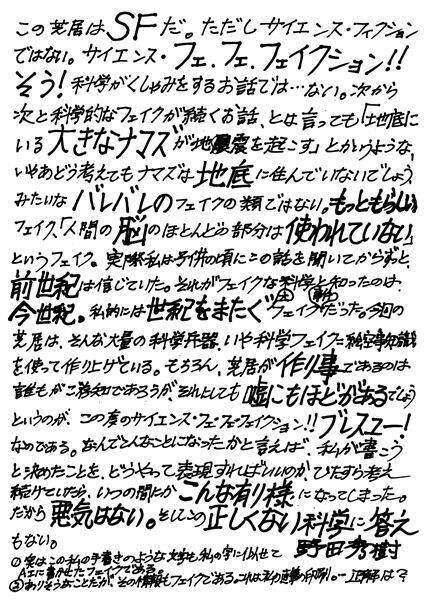 この芝居はSFだ。ただしサイエンス・フィクション
ではない。サイエンス・フェ、フェ、フェイクション!!
そう!科学がくしゃみをするお話では…ない。次から
次と科学的なフェイクが続くお話、とは言っても「地底に
いる大きなナマズが地震を起こす」とかいうような、
いやあどう考えてもナマズは地底に住んでいないでしょう、
みたいなバレバレのフェイクの類ではない。もっともらしい
フェイク、「人間の脳のほとんどの部分は使われていない」
というフェイク。実際私は子供の頃にこの話を聞いてからずと、
前世紀は信じていた。それがフェイクな科学と知ったのは、
今世紀。私的には世紀をまたぐフェイクだった。今回の
芝居は、そんな大量の科学兵器、いや科学フェイク=
を使って作り上げている。もちろん、芝居が作り事であるのは
誰もがご承知であろうが、それにしても嘘にもほどがあるでしょう
というのが、この度のサイエンス・フェ・フェ・フェクション!!ブレスユー!
なのである。なんでこんなことになったかと言えば、私が書こう
と決めたことを、どうやって表現すればいいのか、ひたすら考え
続けていたら、いつの間にかこんな有り様になってしまった。
だから悪気はない。そしてこの正しくない科学に答え
もない。
野田秀樹
①実はこの私の手書きのような文字も私の字に似せて
AIに書かせたフェイクである。
②ありそうなことだが、その情報もフェイクである。これは私の直筆の印刷。…正解は?